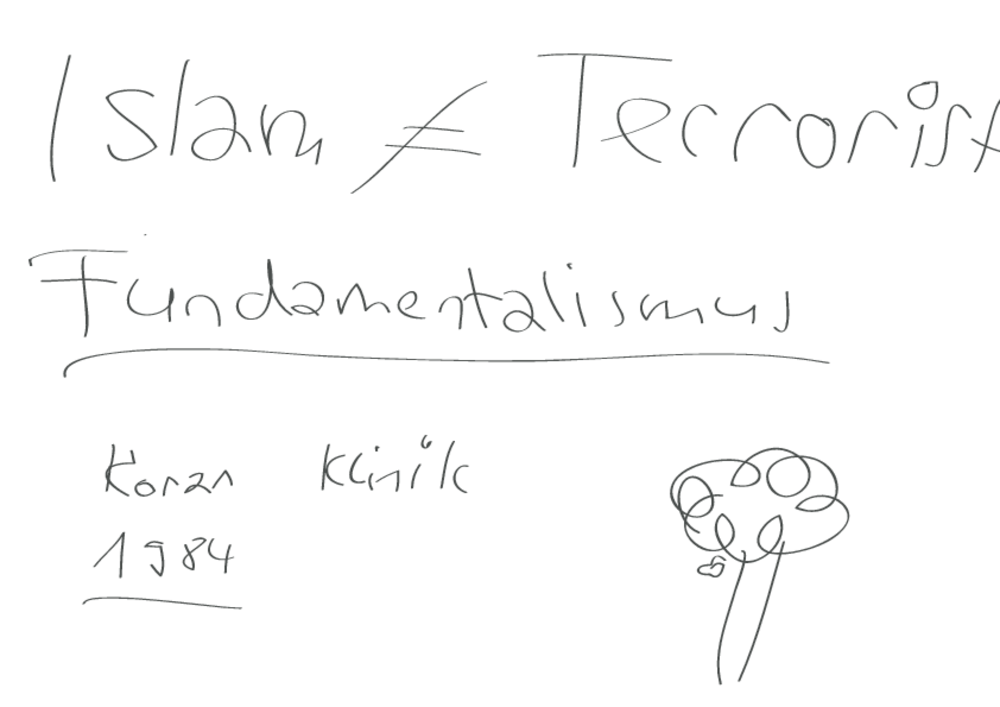 Islam ≠ Terrorist
Fundamentalismus
Koran Klinik
1984